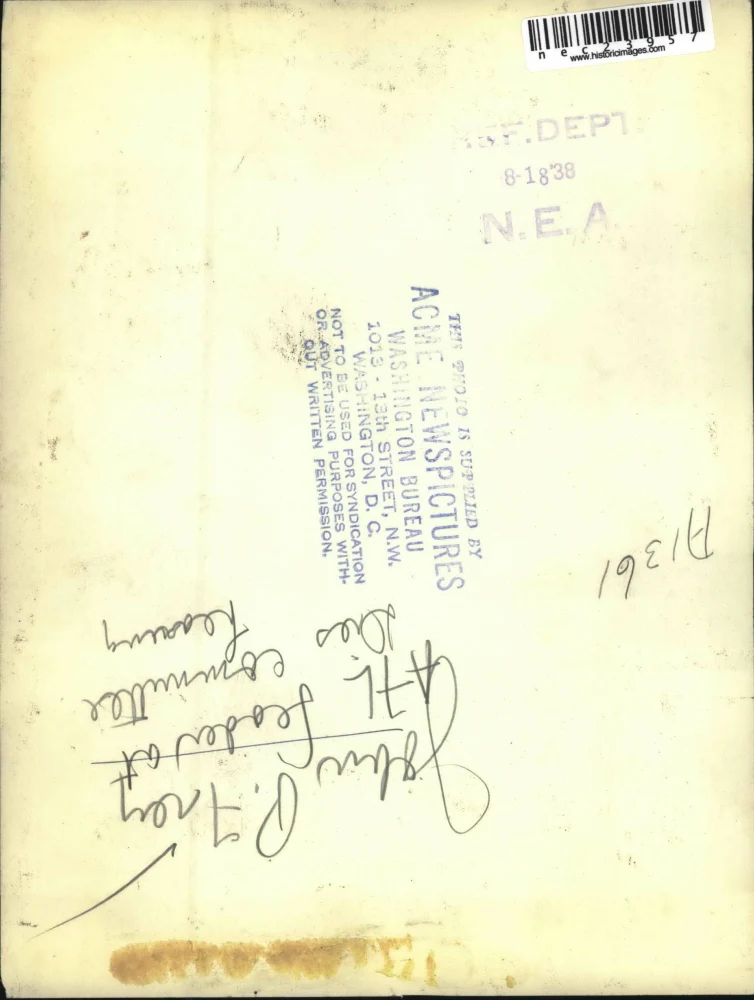 nec23957
www.historicimages.com
REF. DEPT.
8-18'38
N. E. A.
THIS PHOTO IS SUPPLIED BY
ACME NEWSPICTURES
WASHINGTON BUREAU
1013 - 13th STREET, N.W.
WASHINGTON, D. C.
NOT TO BE USED FOR SYNDICATION
OR ADVERTISING PURPOSES WITH-
OUT WRITTEN PERMISSION.
A1361
John P. Frey
AFL leader at
Dies committee
hearing